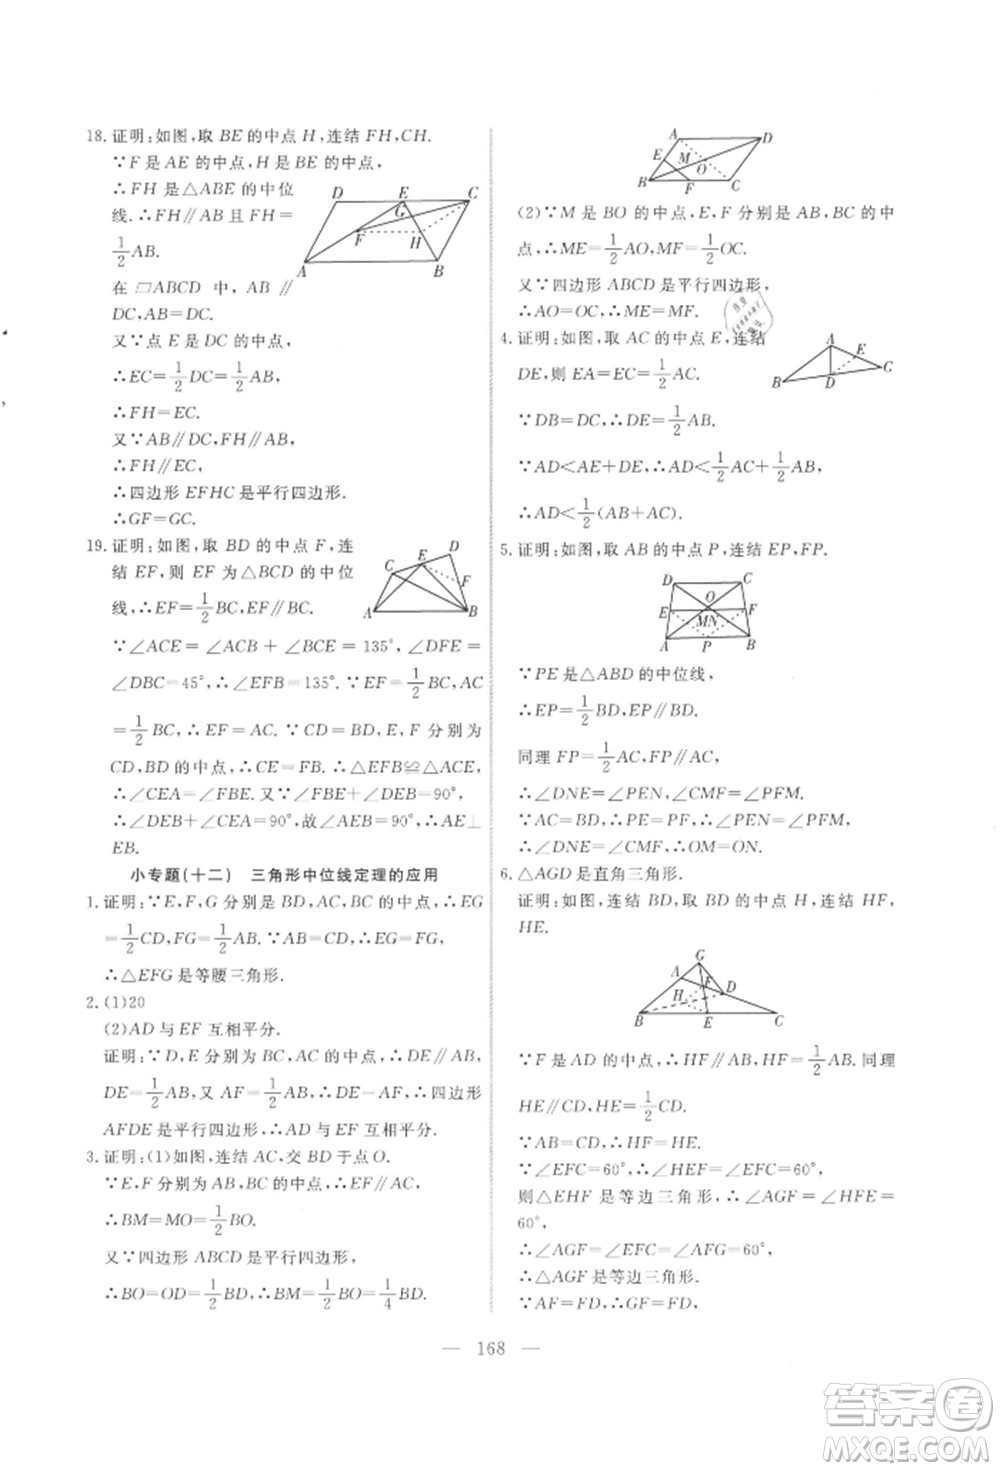 18. 证明:如图,取 BE 的中点 H,连结 FH,CH.
∵F 是 AE 的中点,H 是 BE 的中点,
∴FH 是△ABE 的中位
线.∴FH∥AB 且 FH=
1/2 AB.
在 ▱ABCD 中, AB∥
DC,AB=DC.
又∵点 E 是 DC 的中点,
∴EC=1/2 DC=1/2 AB.
∴FH=EC.
又∵AB∥DC,FH∥AB,
∴FH∥EC,
∴四边形 EFHC 是平行四边形.
∴GF=GC.
D E C G F H A B
19. 证明:如图,取 BD 的中点 F,连
结 EF,则 EF 为△BCD 的中位
线,∴EF=1/2 BC,EF∥BC.
∵∠ACE=∠ACB + ∠BCE = 135°,∠DFE =
∠DBC=45°,∴∠EFB=135°. ∵EF=1/2 BC,AC
=1/2 BC,∴EF=AC. ∵CD=BD,E,F 分别为
CD,BD 的中点,∴CE=FB. ∴△EFB≌△ACE.
∴∠CEA=∠FBE. 又∵∠FBE+∠DEB=90°,
∴∠DEB+∠CEA=90°,故∠AEB=90°,∴AE⊥
EB.
C E D F A B
小专题(十二) 三角形中位线定理的应用
1. 证明:∵E,F,G 分别是 AD,AC,BC 的中点,∴EG
=1/2 CD,FG=1/2 AB. ∵AB=CD,∴EG=FG,
∴△EFG 是等腰三角形.
2. (1)20
(2)AD 与 EF 互相平分.
证明:∵D,E 分别为 BC,AC 的中点,∴DE∥AB,
DE=1/2 AB,又 AF=1/2 AB,∴AF=DE,∴四边形
AFDE 是平行四边形,∴AD 与 EF 互相平分.
3. 证明:(1)如图,连结 AC,交 BD 于点 O.
∵E,F 分别为 AB,BC 的中点,∴EF∥AC,
∴BM=MO=1/2 BO.
又∵四边形 ABCD 是平行四边形,
∴BO=OD=1/2 BD,∴BM=1/2 BO=1/4 BD.
A D E M O B F C
(2)∵M 是 BO 的中点,E,F 分别是 AB,BC 的中
点,∴ME=1/2 AO,MF=1/2 OC.
又∵四边形 ABCD 是平行四边形,
∴AO=OC,∴ME=MF.
4. 证明:如图,取 AC 的中点 E,连结
DE,则 EA=EC=1/2 AC.
∵DB=DC,∴DE=1/2 AB.
∵AD<AE+DE,∴AD<1/2 AC+1/2 AB,
∴AD<1/2 (AB+AC).
A E B D C
5. 证明:如图,取 AB 的中点 P,连结 EP,FP.
D C O E M N F A P B
∵PE 是△ABD 的中位线,
∴EP=1/2 BD,EP∥BD.
同理 FP=1/2 AC,FP∥AC,
∴∠DNE=∠PEN,∠CMF=∠PFM.
∵AC=BD,∴PE=PF,∴∠PEN=∠PFM,
∴∠DNE=∠CMF,∴OM=ON.
6. △AGD 是直角三角形.
证明:如图,连结 BD,取 BD 的中点 H,连结 HF,
HE.
G A F D H B E C
∵F 是 AD 的中点,∴HF∥AB,HF=1/2 AB. 同理
HE∥CD,HE=1/2 CD.
∵AB=CD,∴HF=HE.
∵∠EFC=60°,∴∠HEF=60°,
则△EHF 是等边三角形,∴∠AGF=∠HFE=
60°,
∴∠AGF=∠EFC=∠AFG=60°,
∴△AGF 是等边三角形.
∵AF=FD,∴GF=FD,
— 168 —
答案卷
MXQE.COM